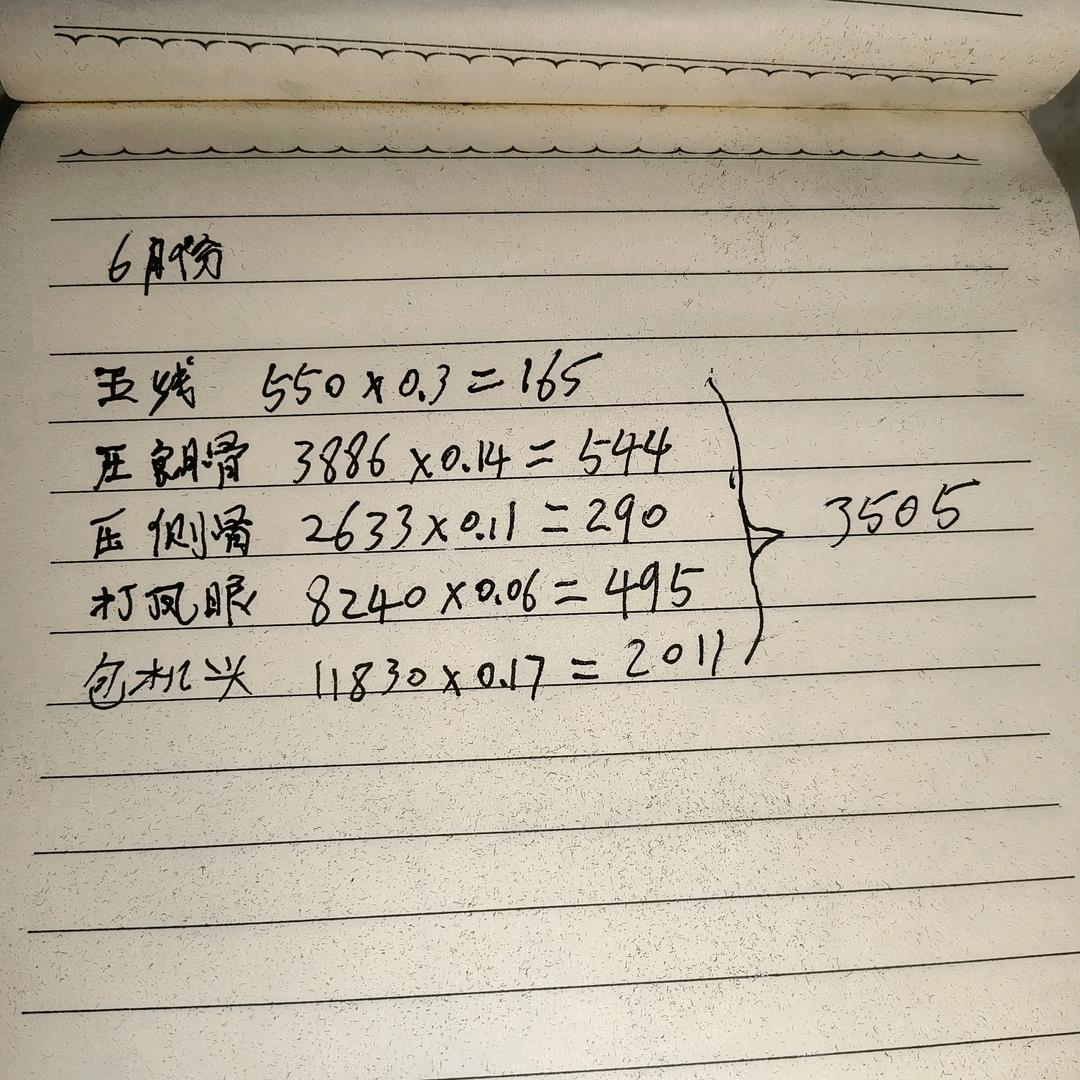 6月份
五线 550×0.3=165
压胸骨 3886×0.14=544
压侧骨 2633×0.11=290
打凤眼 8240×0.06=495
包机头 11830×0.17=2011
3505